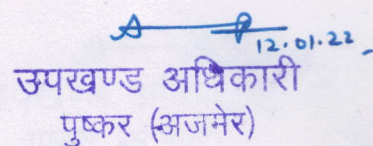 12.01.22
उपखण्ड अधिकारी
पुष्कर (अजमेर)